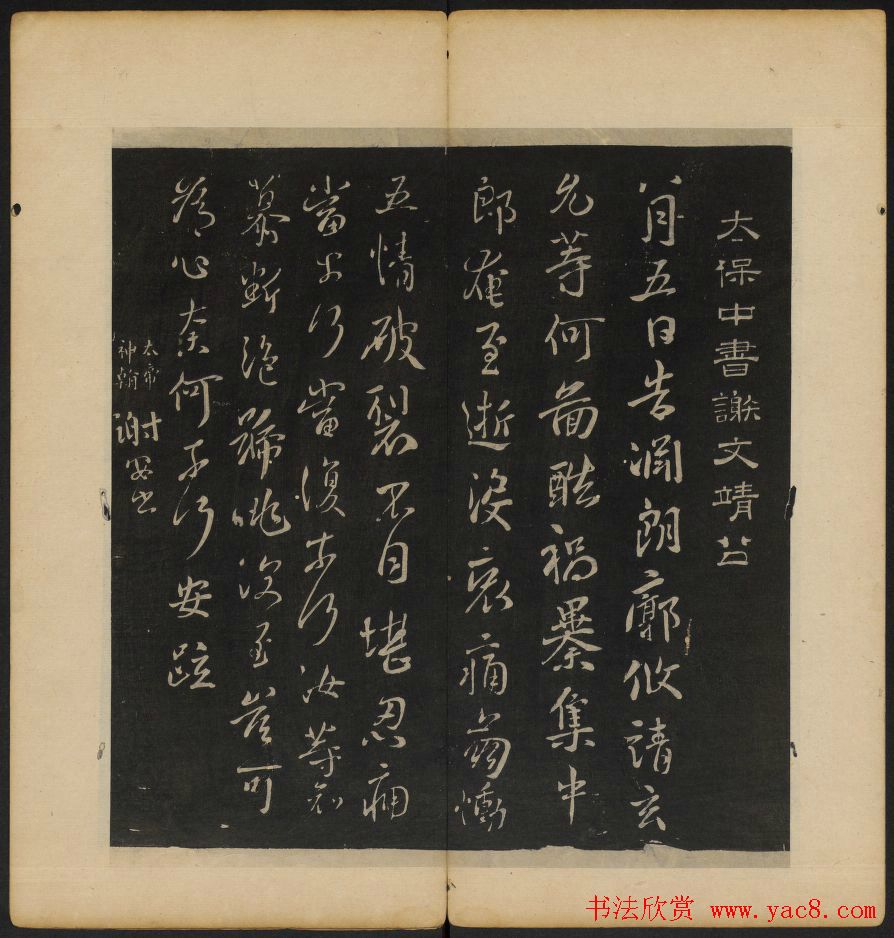 太保中書謝文靖公
八月五日告淵朗廓攸靖玄
允等何圖酷禍暴集中
郎奄至逝沒哀痛崩慟
五情破裂不自堪忍痛
當奈何當復奈何汝等哀
慕斷絕號咷深至豈可
為心奈何奈何安疏
神翰
謝安書
书法欣赏 www.yac8.com